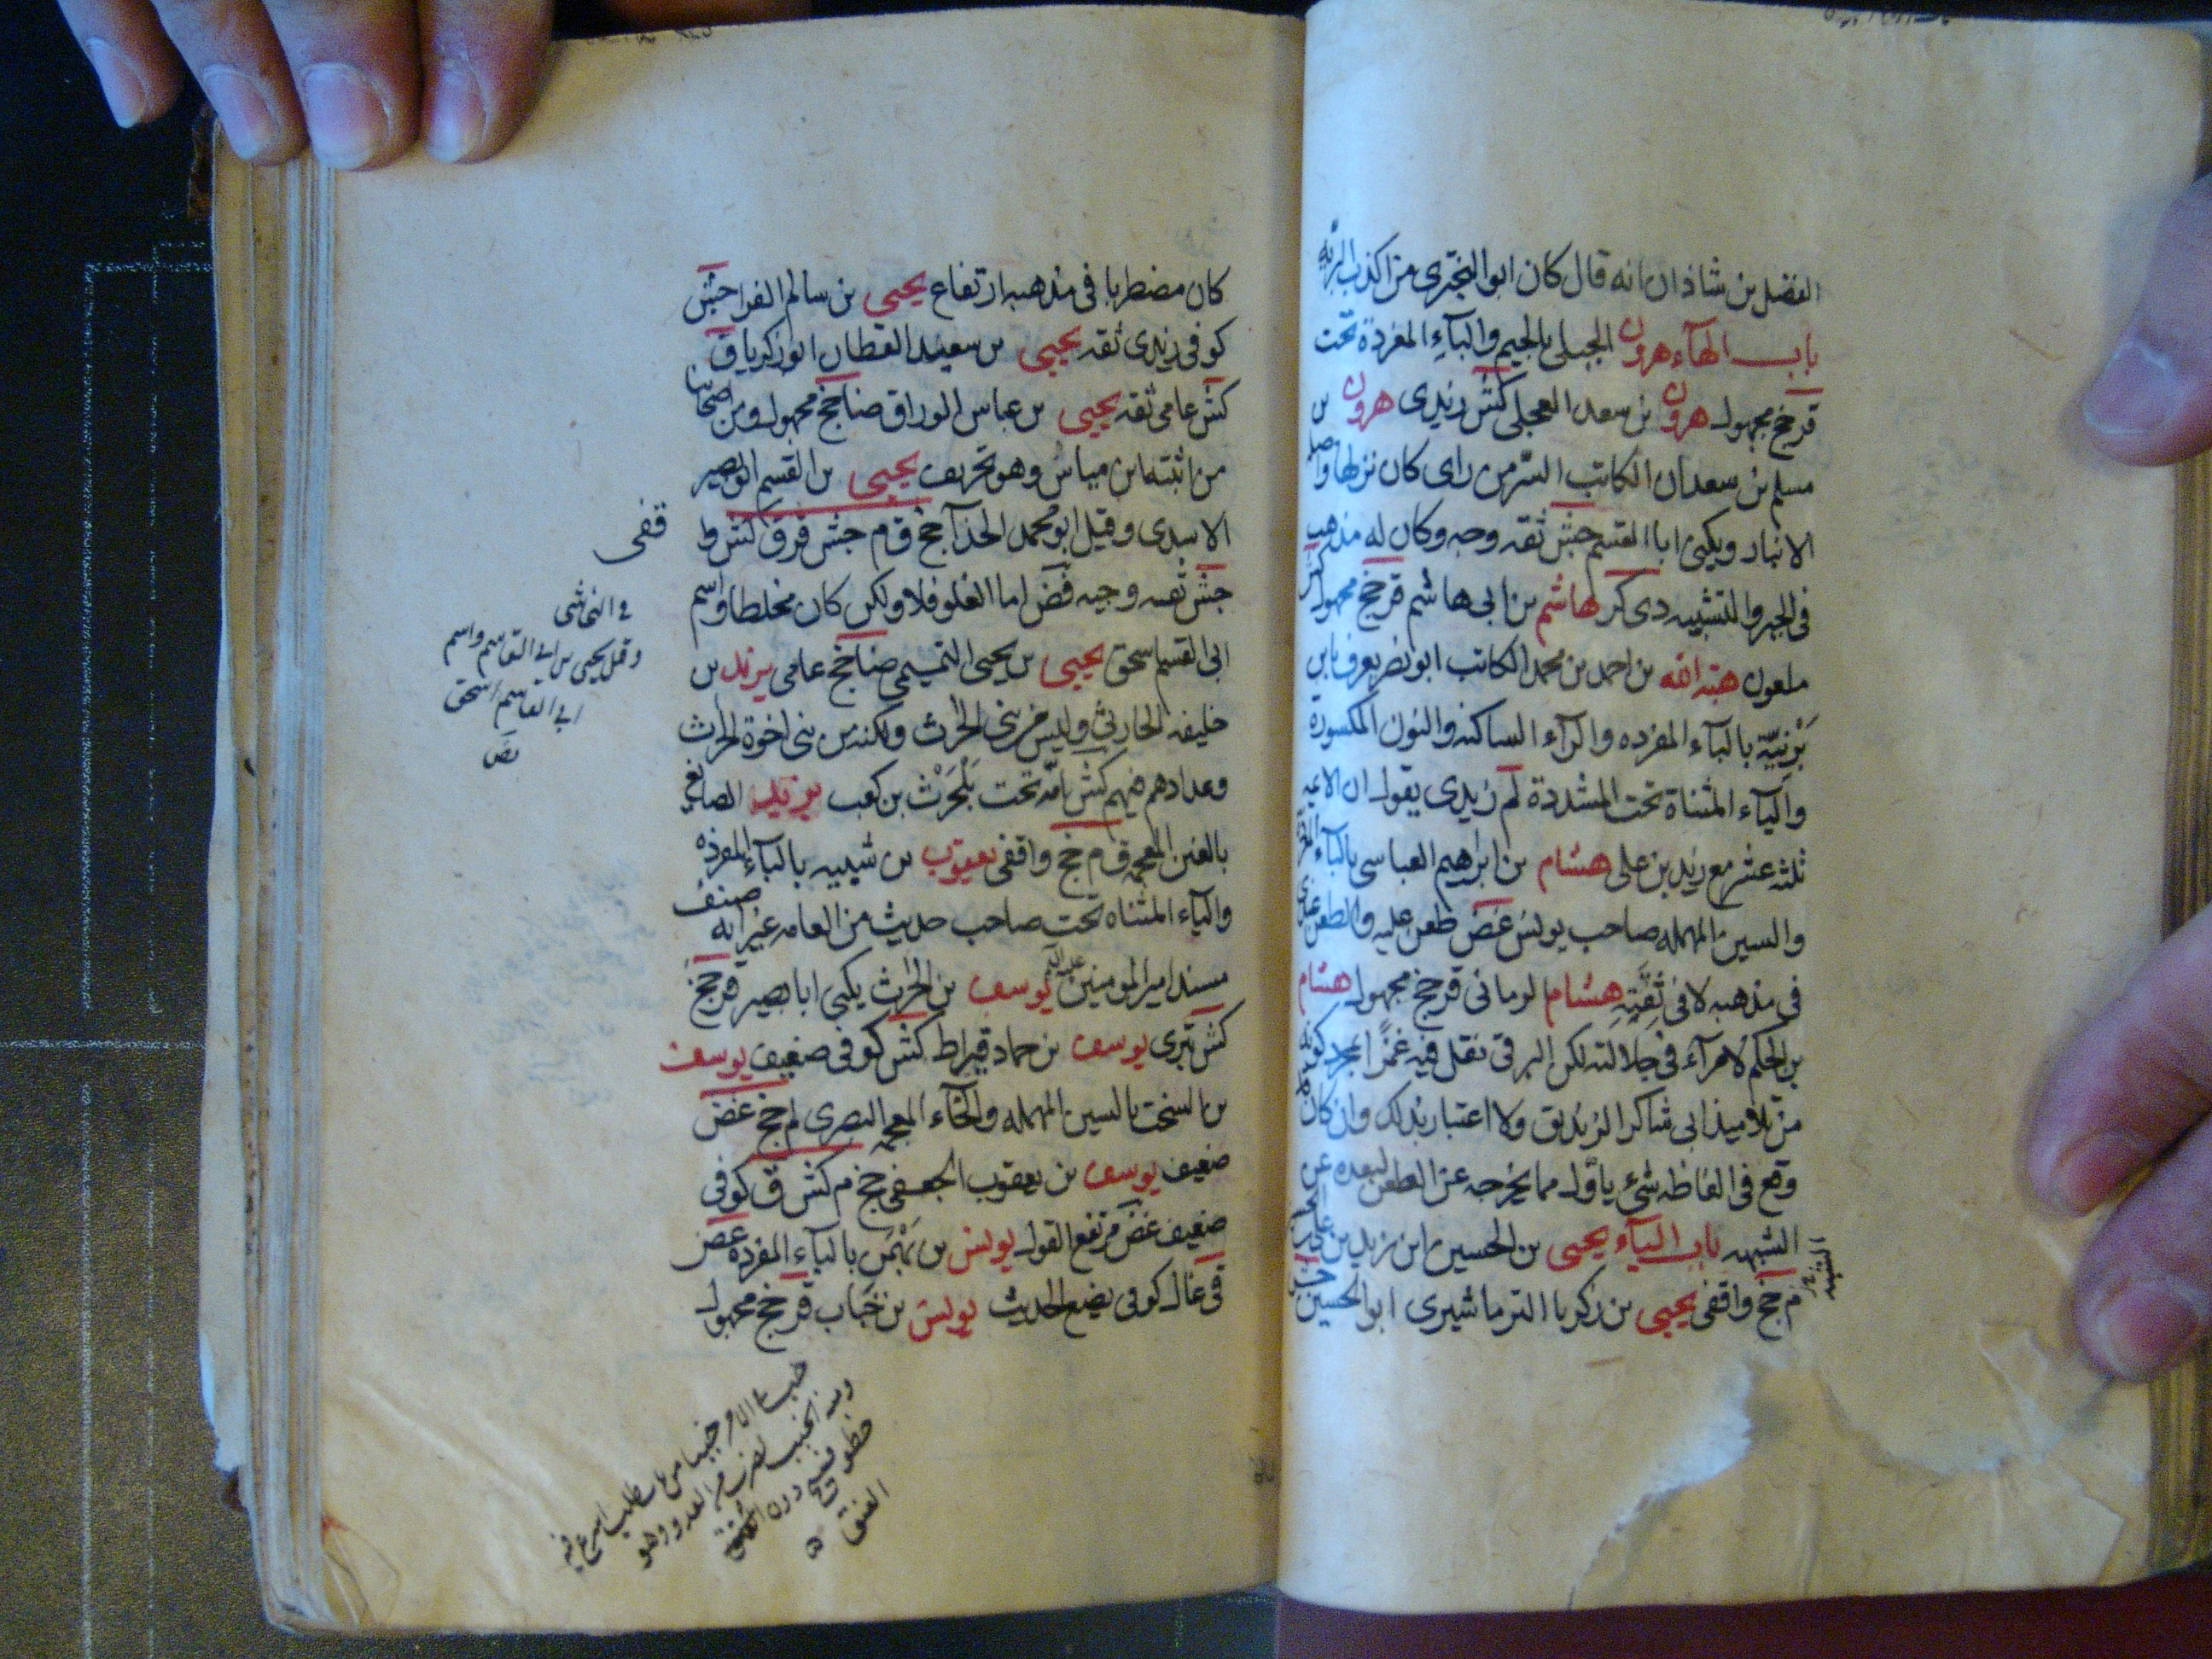 الفضل بن شاذان انه قال كان ابو البختري من اكذب البريه
باب الهاء هرون الجبلى بالجيم والباء المفردة تحت
قر جخ مجهول هرون بن سعد العجلى كش زيدى هرون بن
مسلم بن سعدان الكاتب السر من راى كان نزلها واصله
الانبار ويكنى ابا القسم جش ثقه وجه وكان له مذهب
فى الجبر والتشبيه دى كر هاشم بن ابى هاشم قر جخ مجهول كش
ملعون هبة الله بن احمد بن محمد الكاتب ابو نصر يعرف بابن
برنيّة بالباء المفرده والراء الساكنه والنون المكسورة
والياء المثناة تحت المشددة لم زيدى يقول ان الائمه
ثلثه عشر مع زيد بن على هشام بن ابراهيم العباسى بالباء المفردة
والسين المهمله صاحب يونس غض طعن عليه والطعن عندى
فى مذهبه لا فى ثقته هشام الرمانى قر جخ مجهول هشام
بن الحكم لا مراء فى جلالته لكن البرقى نقل فيه غمزا لمجرد كونه
من تلاميذ ابى شاكر الزنديق ولا اعتبار بذلك وان كان
وقع فى الفاظه شئ ياوّل مما يخرجه عن الطعن لبعده عن
الشبهه باب الياء يحيى بن الحسين ابن زيد بن على بن الحسين
م جخ واقفى يحيى بن زكريا الترماشيرى ابو الحسين جش
كان مضطربا فى مذهبه ارتفاع يحيى بن سالم الفرا جش
كوفى زيدى ثقه يحيى بن سعيد القطان ابو زكريا ق
كش عامى ثقه يحيى بن عباس الوراق ضا جخ مجهول ومن اصحابنا
من اثبته ابن مياس وهو تحريف يحيى بن القسم ابو بصير
الاسدى وقيل ابو محمد الحذآ جخ ق م جش قر ق كش ط
جش ثقه وجيه فض اما الغلو فلا ولكن كان مخلطا واسم
ابى القسم اسحق يحيى بن يحيى التميمى ضا جخ عامى يزيد بن
خليفه الحارثى وليس من بنى الحرث ولكنه من بنى اخوة الحرث
وعدادهم فيهم كش بامّه تحت بلحرث بن كعب يزيد الصايغ
بالغين المعجمه ق م جخ واقفى يعقوب بن شيبه بالباء المفرده
والياء المثناه تحت صاحب حديث من العامه غير انه صنف
مسند امير المومنين عليه السلم يوسف بن الحرث يكنى ابا بصير قر جخ
كش بترى يوسف بن حماد قيراط كش كوفى ضعيف يوسف
بن السخت بالسين المهمله والخاء المعجمه البصرى لم جخ غض
ضعيف يوسف بن يعقوب الجعفى جخ م كش ق كوفى
ضعيف غض مرتفع القول يونس بن بهمن بالباء المفرده غض
ق غال كوفى يضع الحديث يونس بن خباب قر جخ مجهول
قفى
فى النجاشى
وقيل يحيى بن ابى القاسم واسم
ابى القاسم اسحق
نص
الشبهه